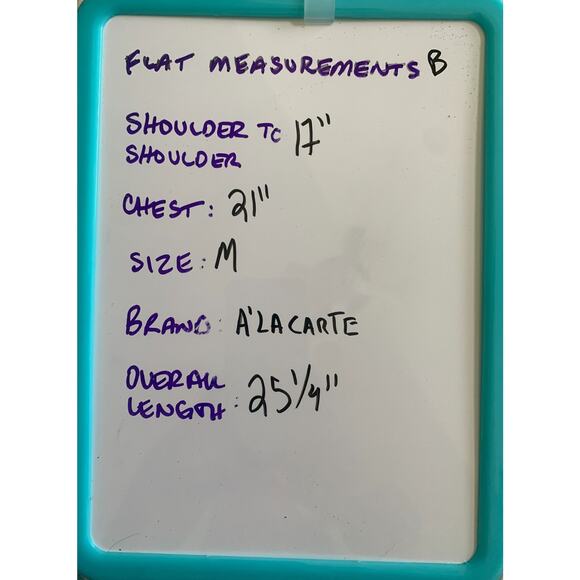 FLAT MEASUREMENTS B
SHOULDER TO 17"
SHOULDER
CHEST: 21"
SIZE: M
BRAND: A'LACARTE
OVERALL
LENGTH: 25 1/4"